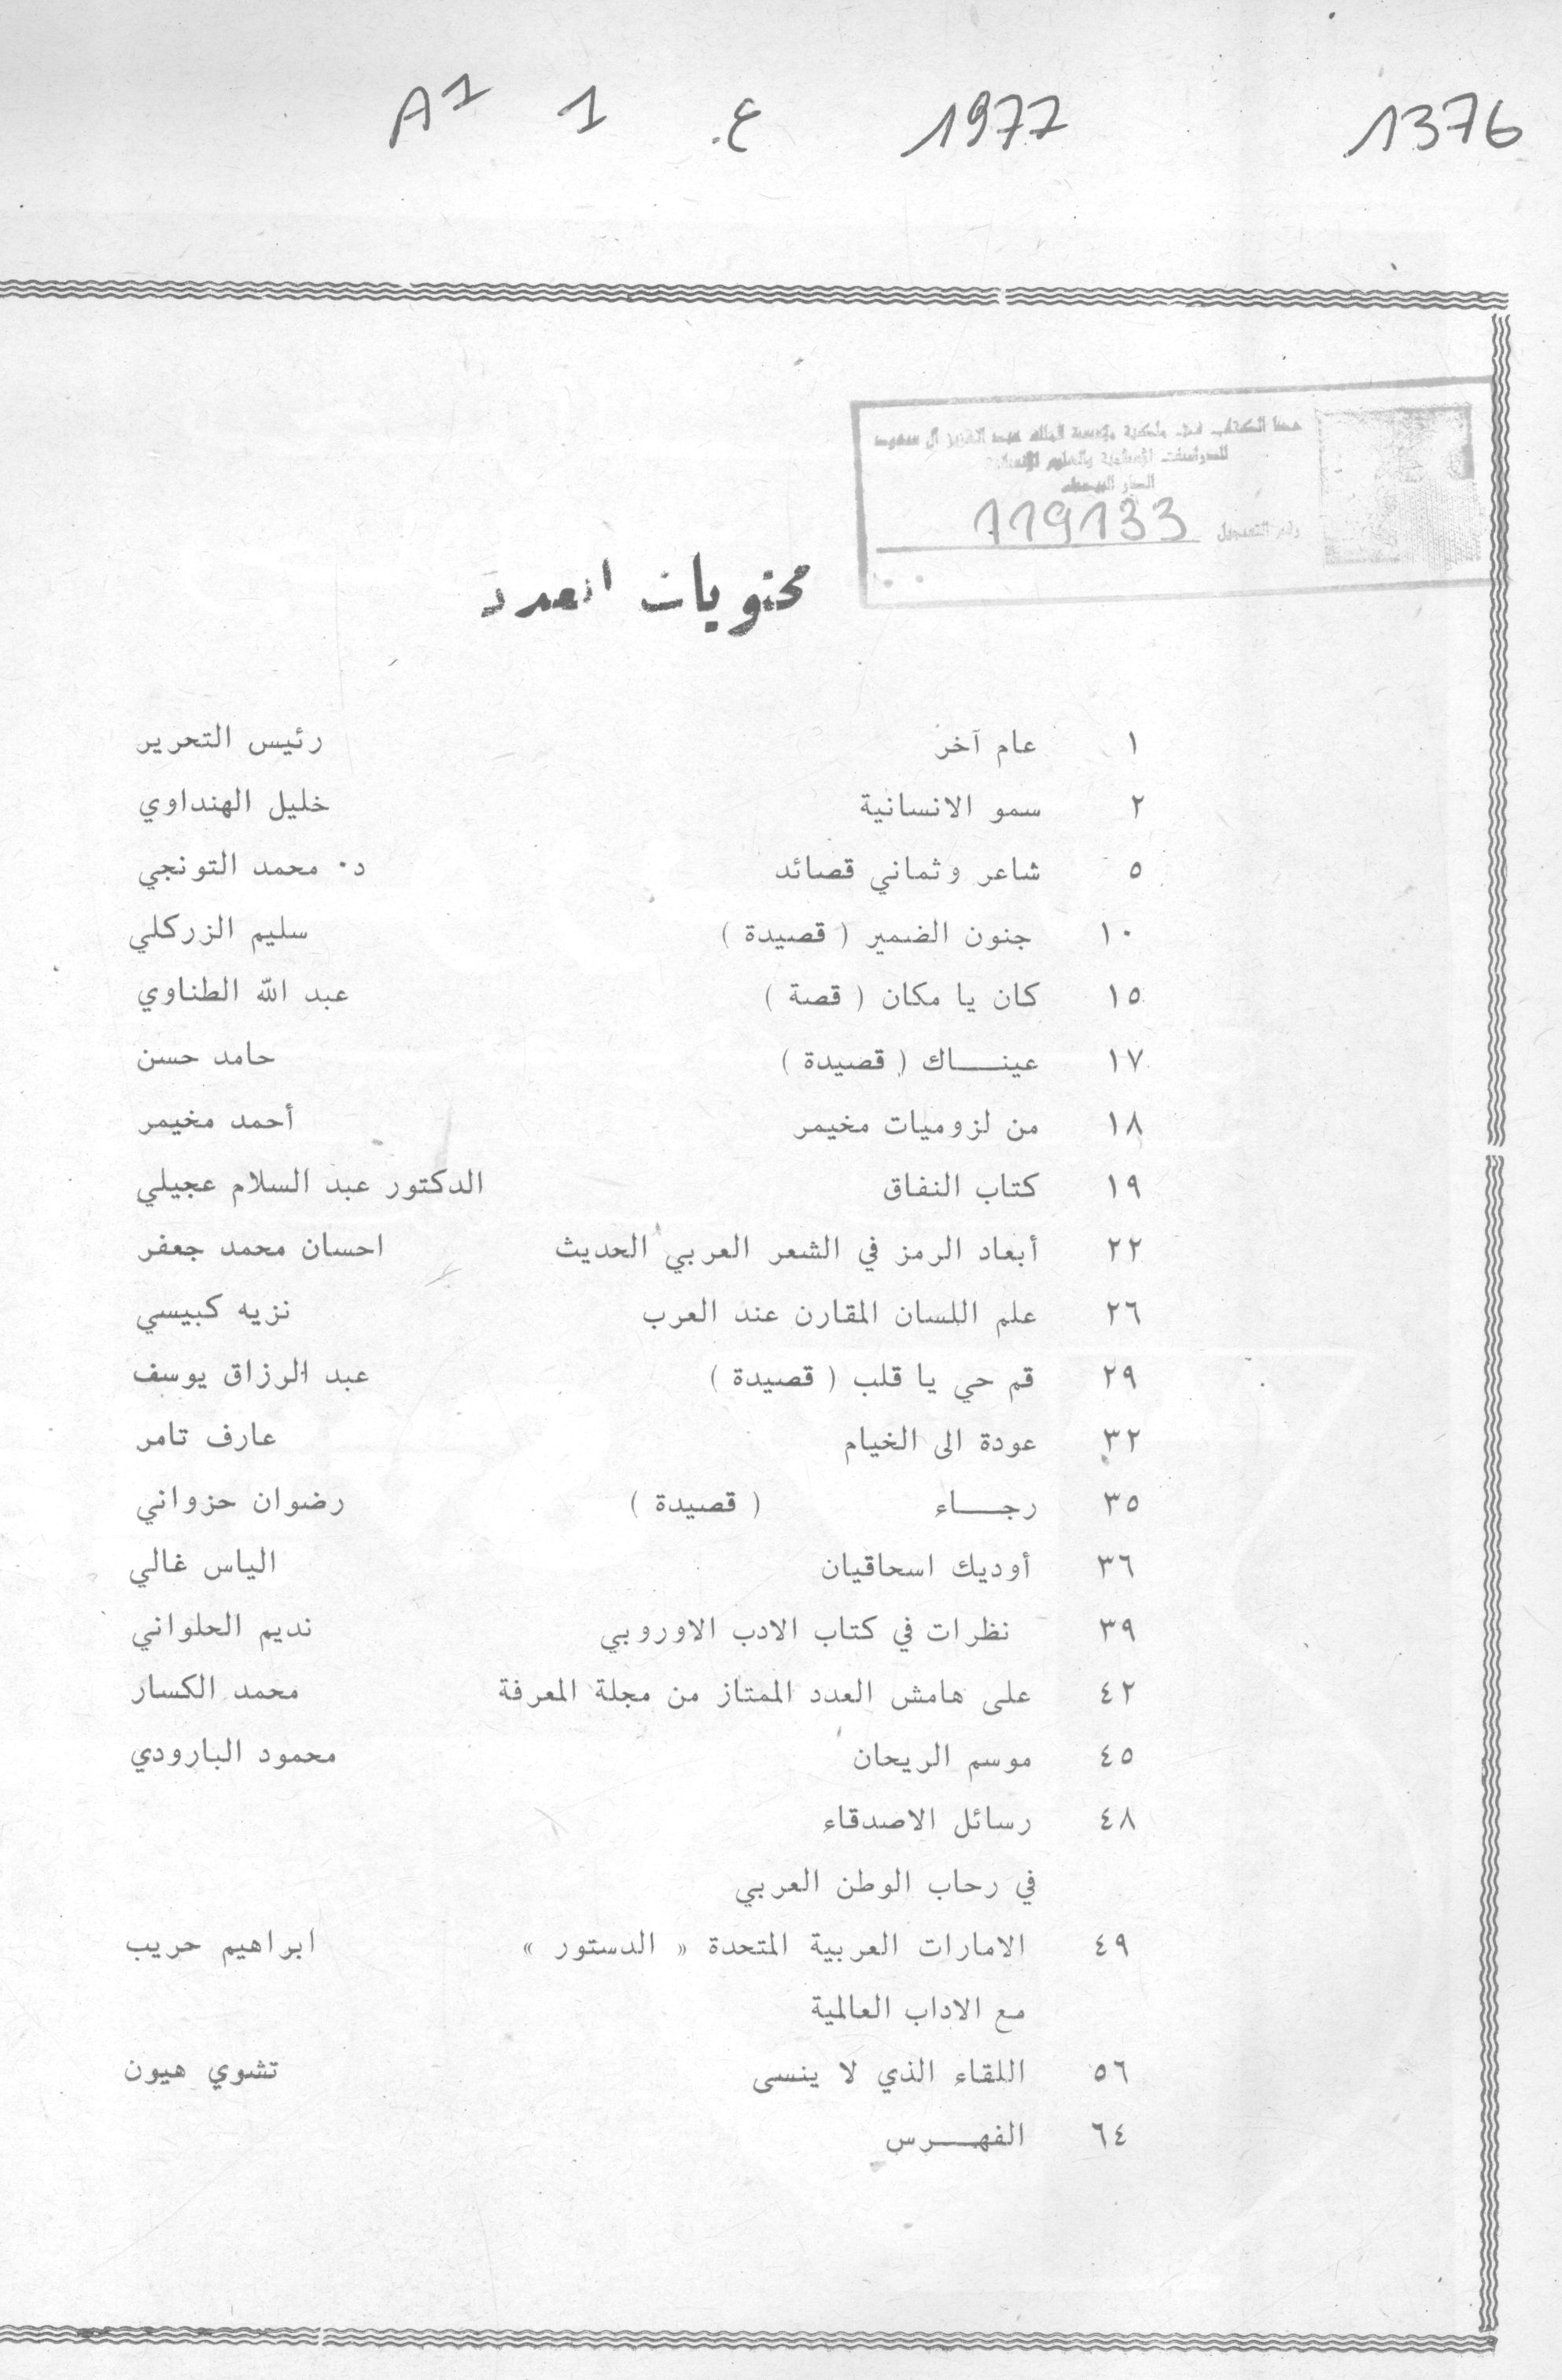 1376 1977 ع. 1 A1
هذا الكتاب في ملكية مؤسسة الملك عبد العزيز آل سعود
للدراسات الإسلامية والعلوم الإنسانية
الدار البيضاء
رقم التسجيل 119133
محتويات العدد
١ عام آخر رئيس التحرير
٢ سمو الانسانية خليل الهنداوي
٥ شاعر وثماني قصائد د. محمد التونجي
١٠ جنون الضمير ( قصيدة ) سليم الزركلي
١٥ كان يا مكان ( قصة ) عبد الله الطناوي
١٧ عينـــاك ( قصيدة ) حامد حسن
١٨ من لزوميات مخيمر أحمد مخيمر
١٩ كتاب النفاق الدكتور عبد السلام عجيلي
٢٢ أبعاد الرمز في الشعر العربي الحديث احسان محمد جعفر
٢٦ علم اللسان المقارن عند العرب نزيه كبيسي
٢٩ قم حي يا قلب ( قصيدة ) عبد الرزاق يوسف
٣٢ عودة الى الخيام عارف تامر
٣٥ رجـــاء ( قصيدة ) رضوان حزواني
٣٦ أوديك اسحاقيان الياس غالي
٣٩ نظرات في كتاب الادب الاوروبي نديم الحلواني
٤٢ على هامش العدد الممتاز من مجلة المعرفة محمد الكسار
٤٥ موسم الريحان محمود البارودي
٤٨ رسائل الاصدقاء
في رحاب الوطن العربي
٤٩ الامارات العربية المتحدة « الدستور » ابراهيم حريب
مع الاداب العالمية
٥٦ اللقاء الذي لا ينسى تشوي هيون
٦٤ الفهـــرس